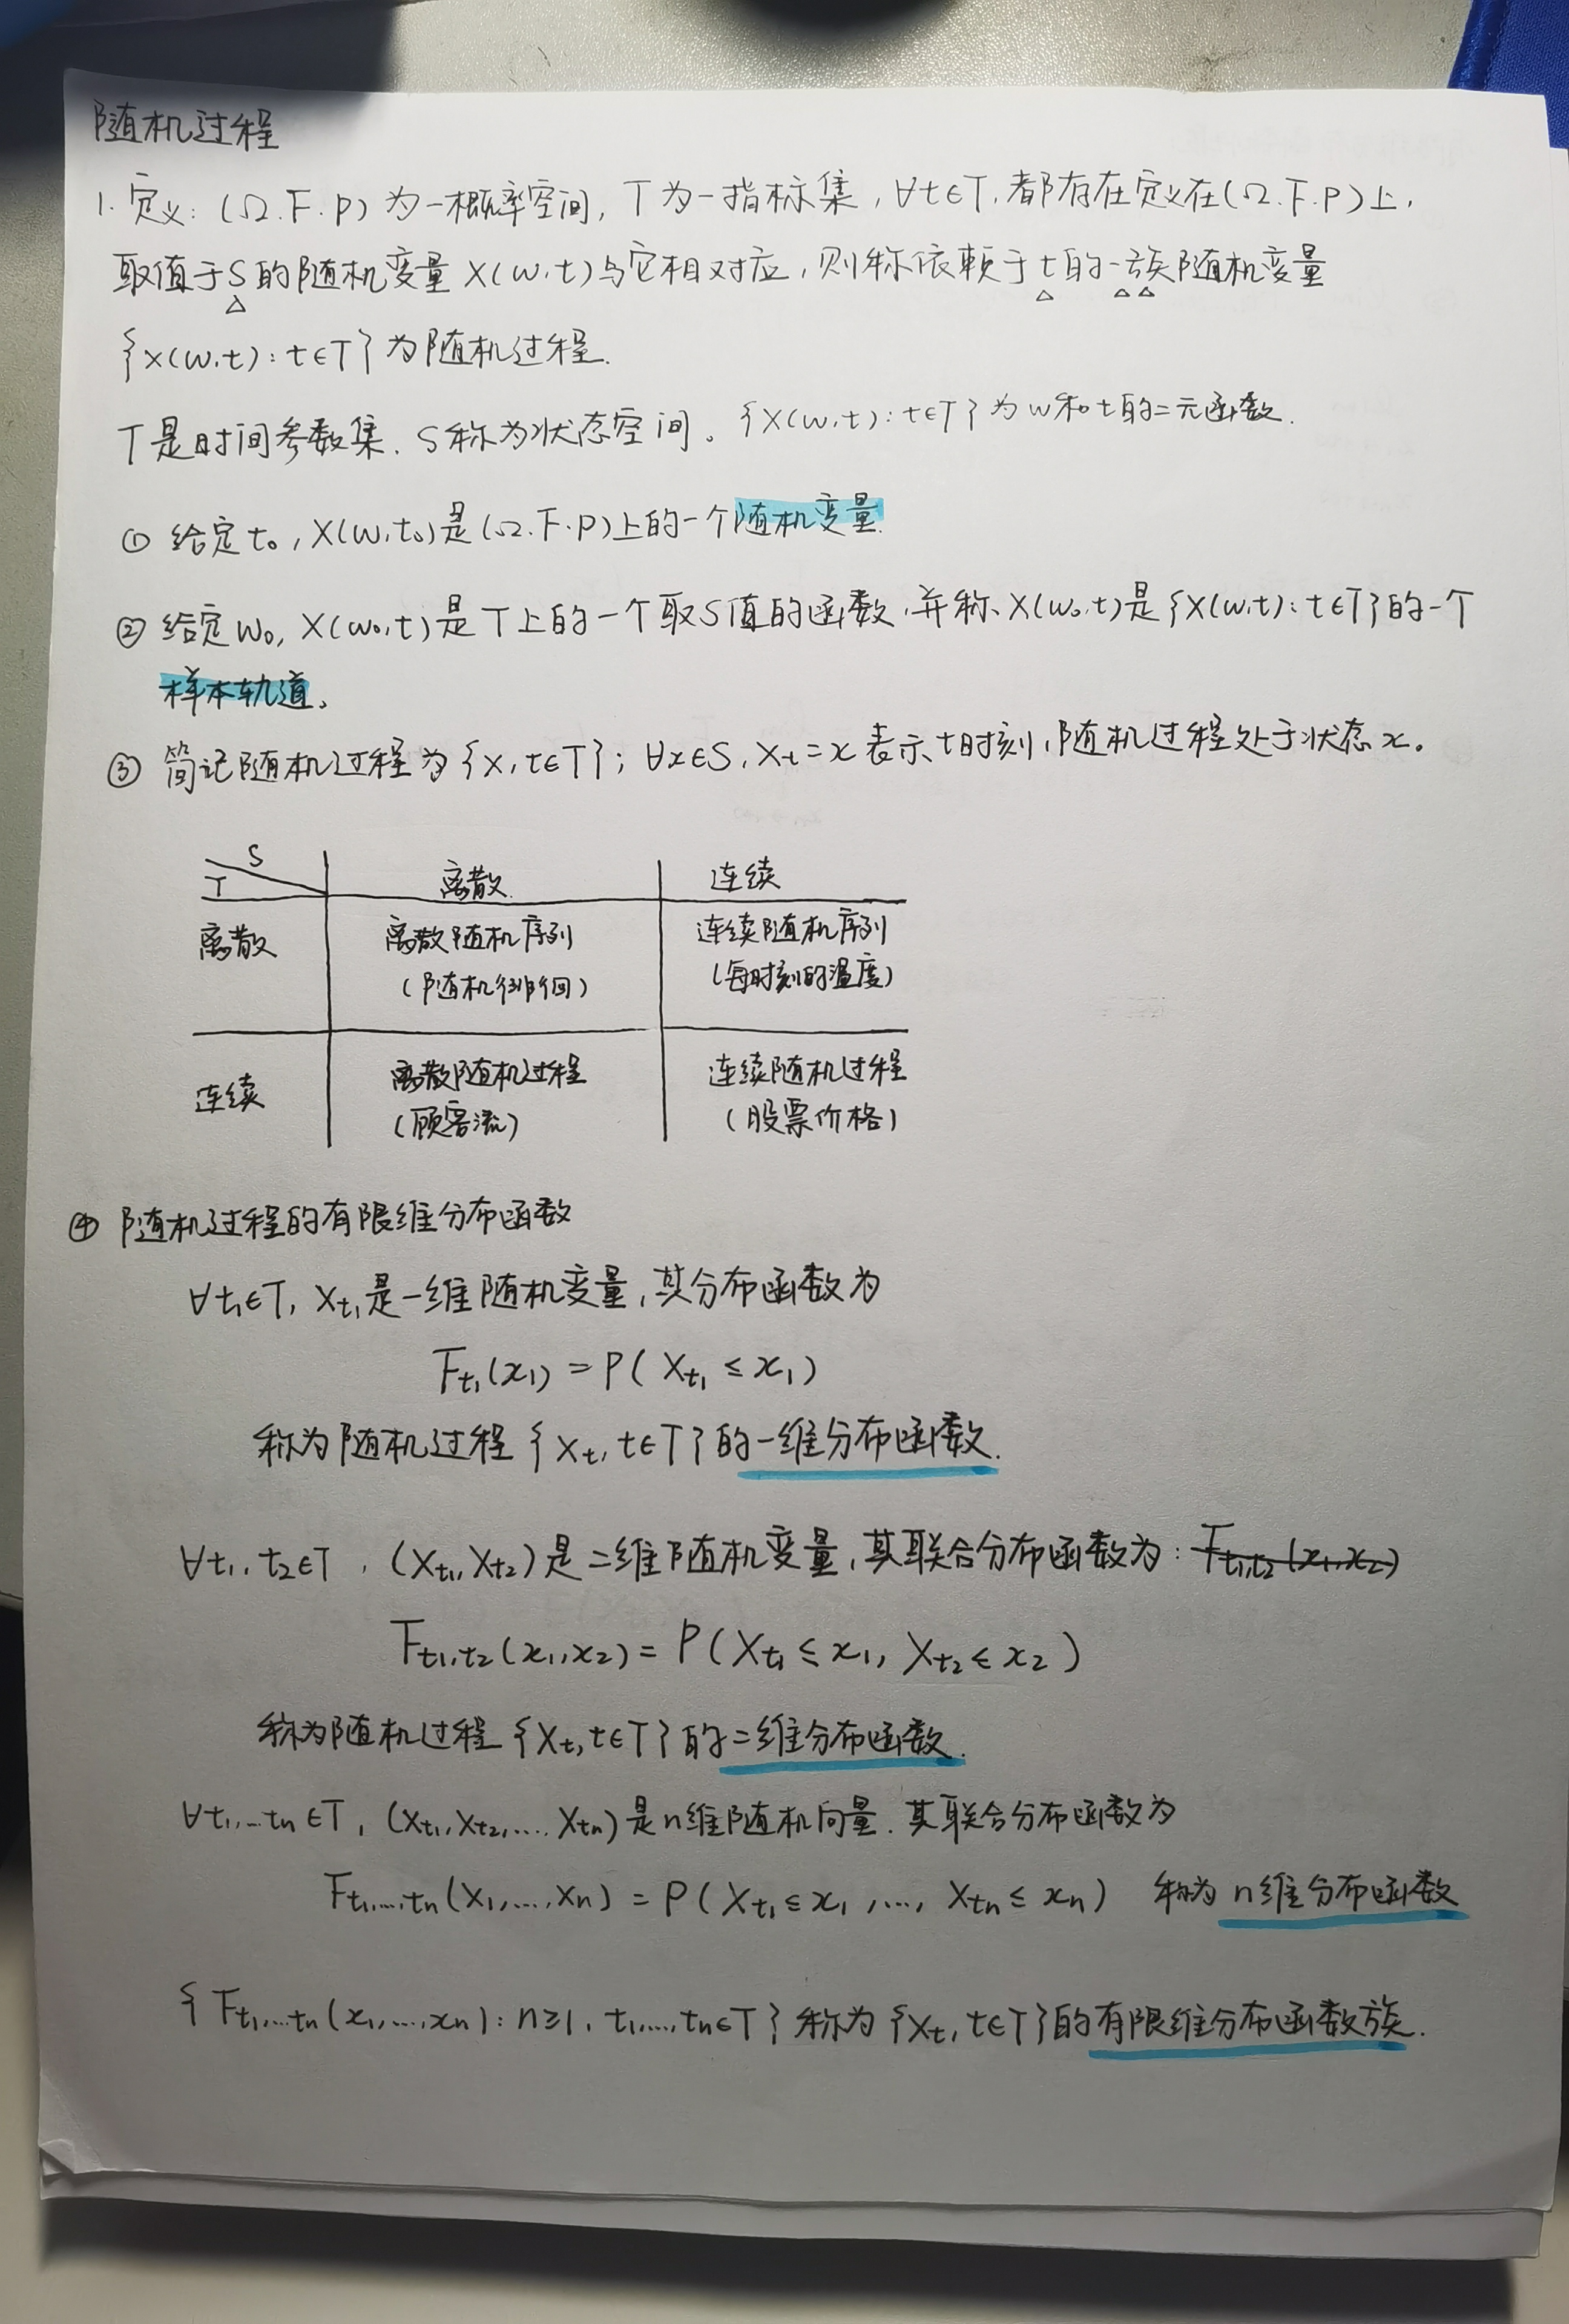 随机过程
1. 定义: (Ω.F.P) 为一概率空间, T为一指标集, ∀t∈T, 都存在定义在(Ω.F.P)上,
取值于S的随机变量 X(w,t)与它相对应, 则称依赖于t的一族随机变量
{X(w,t): t∈T} 为随机过程.
T是时间参数集. S称为状态空间。{X(w,t): t∈T} 为w和t的二元函数.
① 给定t₀, X(w,t₀)是(Ω.F.P)上的一个随机变量.
② 给定w₀, X(w₀,t)是T上的一个取S值的函数, 并称X(w₀,t)是{X(w,t): t∈T}的一个
样本轨道。
③ 简记随机过程为{X, t∈T}; ∀x∈S, Xₜ=x 表示t时刻, 随机过程处于状态x。
S
T 离散 连续
离散 离散随机序列 连续随机序列
(随机徘徊) (每时刻的温度)
连续 离散随机过程 连续随机过程
(顾客流) (股票价格)
④ 随机过程的有限维分布函数
∀t₁∈T, X_{t₁}是一维随机变量, 其分布函数为
F_{t₁}(x₁) = P( X_{t₁} ≤ x₁)
称为随机过程 {Xₜ, t∈T}的一维分布函数.
∀t₁, t₂∈T, (X_{t₁}, X_{t₂})是二维随机变量, 其联合分布函数为: F_{t₁,t₂}(x₁,x₂)
F_{t₁,t₂}(x₁,x₂) = P(X_{t₁} ≤ x₁, X_{t₂} ≤ x₂)
称为随机过程{Xₜ, t∈T}的二维分布函数.
∀t₁,…tₙ∈T, (X_{t₁}, X_{t₂}, …. X_{tₙ})是n维随机向量. 其联合分布函数为
F_{t₁,…,tₙ}(X₁,…,Xₙ) = P( X_{t₁} ≤ x₁ ,…, X_{tₙ} ≤ xₙ) 称为 n维分布函数
{F_{t₁,…tₙ}(x₁,…,xₙ): n≥1, t₁,…,tₙ∈T} 称为{Xₜ, t∈T}的有限维分布函数族.